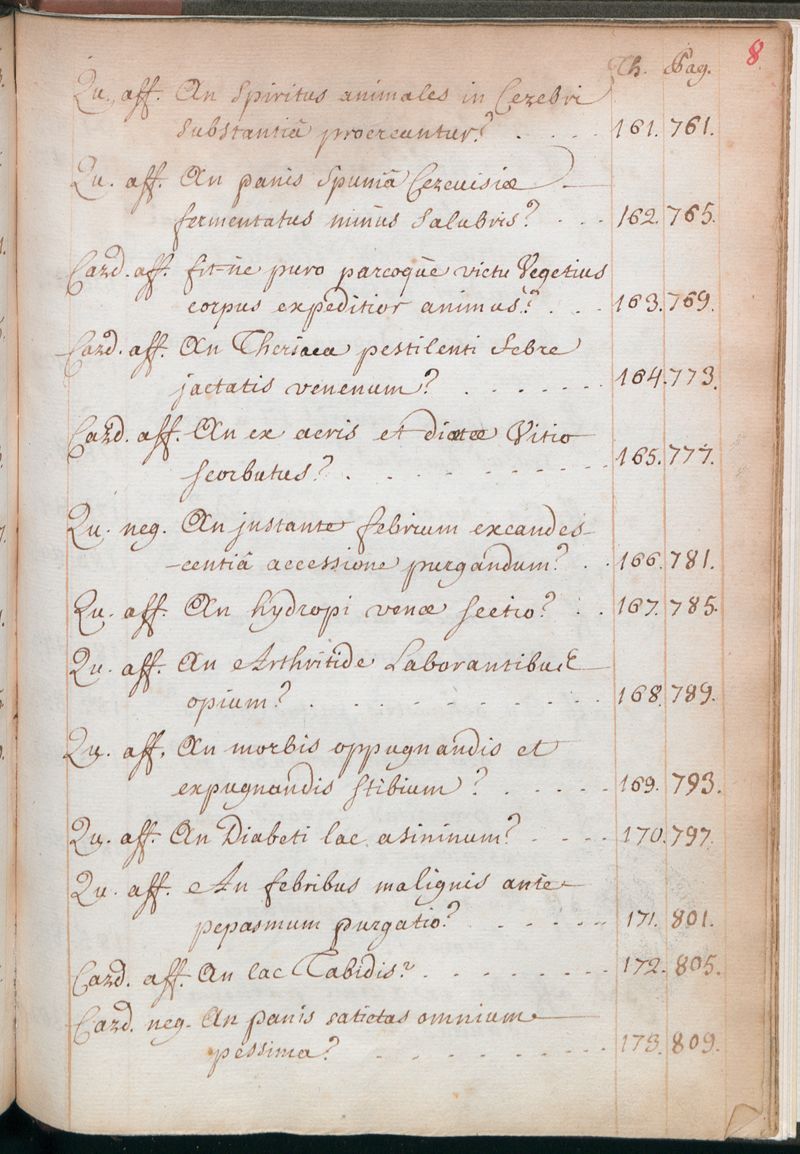 Th. Pag. 8
Qu. aff. An Spiritus animales in Cerebri
Substantiâ procreantur? 161. 761.
Qu. aff. An panis Spumâ Cerevisiæ
fermentatus minus Salubris? 162. 765.
Card. aff. fit-ne puro parcoque victu Vegetius
corpus expeditior animus? 163. 769.
Card. aff. An Theriaca pestilenti febre
jactatis venenum? 164. 773.
Card. aff. An ex aeris et diætæ Vitio
scorbutus? 165. 777.
Qu. neg. An instante febrium excandes-
-centiâ accessione purgandum? 166. 781.
Qu. aff. An hydropi venæ sectio? 167. 785.
Qu. aff. An Arthritide Laborantibus
opium? 168. 789.
Qu. aff. An morbis oppugnandis et
expugnandis stibium? 169. 793.
Qu. aff. An Diabeti lac asininum? 170. 797.
Qu. aff. An febribus malignis ante
pepasmum purgatio? 171. 801.
Card. aff. An lac Tabidis? 172. 805.
Card. neg. An panis satietas omnium
pessima? 173. 809.